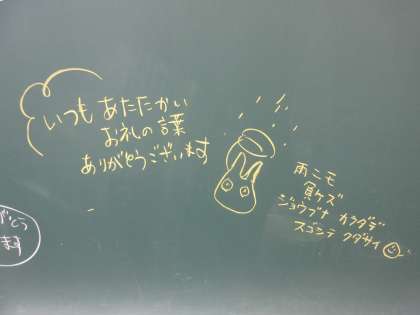 いつも あたたかい
お礼の言葉
ありがとうございます
雨ニモ
負ケズ
ジョウブナ カラダデ
スゴシテ クダサイ
ます